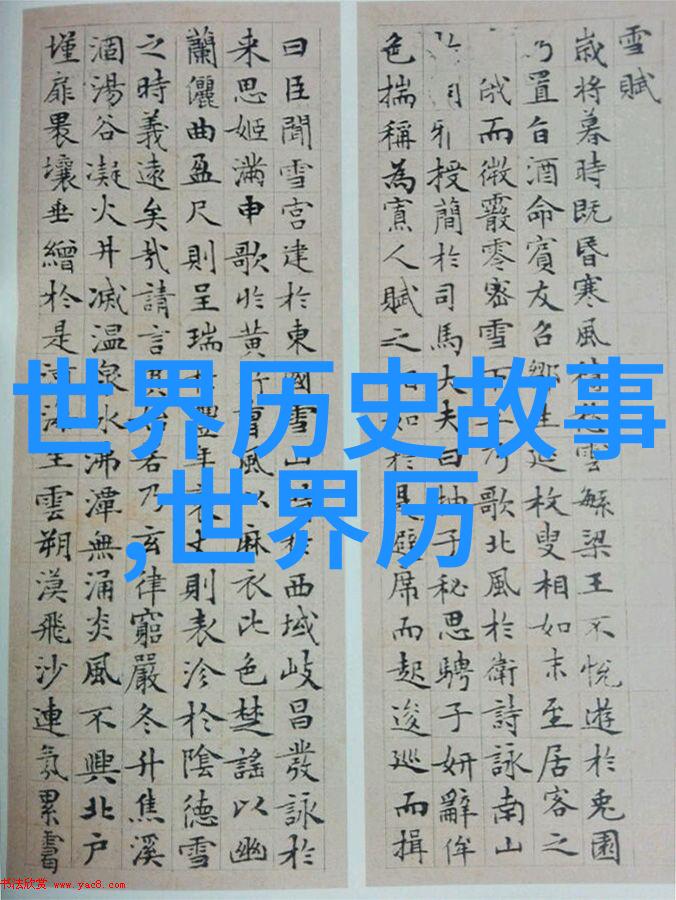 雪賦
歲将暮時既昏寒風雲繁梁王不悅遊於兎園
乃置旨酒命賓友召鄒生延枚叟相如末至居客之
俄而微霰零密雪下王乃歌北風於衛詩詠南山
雅授簡於司馬大夫曰抽子秘思騁子妍辭侔
色揣稱為寡人賦之相如於是避席而起逡巡而揖
曰臣聞雪宮建於東國雪山峙於西域岐昌發詠於
来思姬滿申歌於黃竹曹風以麻衣比色楚謠以幽
蘭儷曲盈尺則呈瑞於豐年袤丈則表沴於陰德雪
之時義遠矣哉請言其始若乃玄律窮嚴冬升焦溪
涸湯谷凝火井滅温泉冰沸潭無涌炎風不興北户
墐扉裸壤垂繒於是河海生雲朔漠飛沙連氛累靄
世界历史故事
,世界历
书法欣赏 www.yac8.com